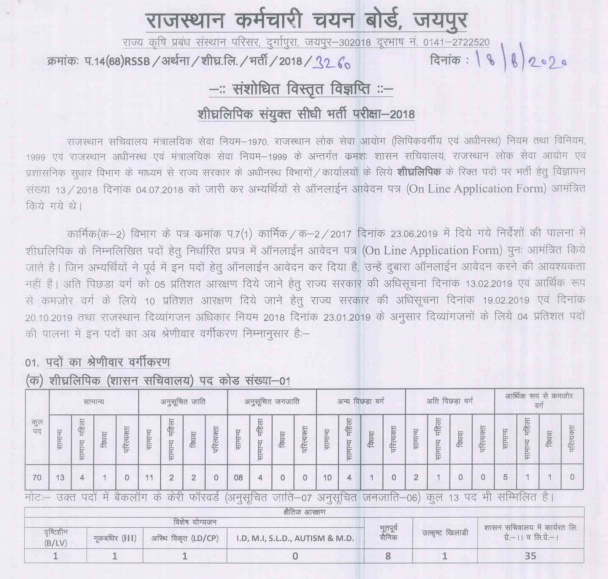 राजस्थान कर्मचारी चयन बोर्ड, जयपुर
राज्य कृषि प्रबंध संस्थान परिसर, दुर्गापुरा, जयपुर–302018 दूरभाष नं. 0141–2722520
क्रमांक: प.14(68)RSSB/अर्थना/शीघ्र.लि./भर्ती/2018/3260 दिनांक : 18/8/2020
–:: संशोधित विस्तृत विज्ञप्ति ::–
शीघ्रलिपिक संयुक्त सीधी भर्ती परीक्षा–2018
राजस्थान सचिवालय मंत्रालयिक सेवा नियम–1970, राजस्थान लोक सेवा आयोग (लिपिकवर्गीय एवं अधीनस्थ) नियम तथा विनियम,
1999 एवं राजस्थान अधीनस्थ एवं मंत्रालयिक सेवा नियम–1999 के अन्तर्गत क्रमशः शासन सचिवालय, राजस्थान लोक सेवा आयोग एवं
प्रशासनिक सुधार विभाग के माध्यम से राज्य सरकार के अधीनस्थ विभागों/कार्यालयों के लिये शीघ्रलिपिक के रिक्त पदों पर भर्ती हेतु विज्ञापन
संख्या 13/2018 दिनांक 04.07.2018 को जारी कर अभ्यर्थियों से ऑनलाईन आवेदन पत्र (On Line Application Form) आमंत्रित
किये गये थे।
कार्मिक(क–2) विभाग के पत्र क्रमांक प.7(1) कार्मिक/क–2/2017 दिनांक 23.06.2019 में दिये गये निर्देशों की पालना में
शीघ्रलिपिक के निम्नलिखित पदों हेतु निर्धारित प्रपत्र में ऑनलाईन आवेदन पत्र (On Line Application Form) पुनः आमंत्रित किये
जाते है। जिन अभ्यर्थियों ने पूर्व में इन पदों हेतु ऑनलाईन आवेदन कर दिया है, उन्हें दुबारा ऑनलाईन आवेदन करने की आवश्यकता
नहीं हैं। अति पिछडा वर्ग को 05 प्रतिशत आरक्षण दिये जाने हेतु राज्य सरकार की अधिसूचना दिनांक 13.02.2019 एवं आर्थिक रूप
से कमजोर वर्ग के लिये 10 प्रतिशत आरक्षण दिये जाने हेतु राज्य सरकार की अधिसूचना दिनांक 19.02.2019 एवं दिनांक
20.10.2019 तथा राजस्थान दिव्यांगजन अधिकार नियम 2018 दिनांक 23.01.2019 के अनुसार दिव्यांगजनों के लिये 04 प्रतिशत पदों
की पालना में इन पदों का अब श्रेणीवार वर्गीकरण निम्नानुसार है:–
01. पदों का श्रेणीवार वर्गीकरण
(क) शीघ्रलिपिक (शासन सचिवालय) पद कोड संख्या–01
कुल पद सामान्य अनुसूचित जाति अनुसूचित जनजाति अन्य पिछडा वर्ग अति पिछडा वर्ग आर्थिक रूप से कमजोर वर्ग
सामान्य सामान्य महिला विधवा परित्यक्ता सामान्य सामान्य महिला विधवा परित्यक्ता सामान्य सामान्य महिला विधवा परित्यक्ता सामान्य सामान्य महिला विधवा परित्यक्ता सामान्य सामान्य महिला विधवा परित्यक्ता सामान्य सामान्य महिला विधवा परित्यक्ता
70 13 4 1 0 11 2 2 0 08 4 0 0 10 4 1 0 2 1 0 0 5 1 1 0
नोट:– उक्त पदों में बैकलॉग के केरी फॉरवर्ड (अनुसूचित जाति–07 अनुसूचित जनजाति–06) कुल 13 पद भी सम्मिलित है।
क्षैतिज आरक्षण
विशेष योग्यजन भूतपूर्व सैनिक उत्कृष्ट खिलाडी शासन सचिवालय में कार्यरत लि.ग्रे.–।। व लि.ग्रे.–।
दृष्टिहीन (B/LV) मूकबधिर (HI) अस्थि विकृत (LD/CP) I.D, M.I, S.L.D., AUTISM & M.D.
1 1 1 0 8 1 35